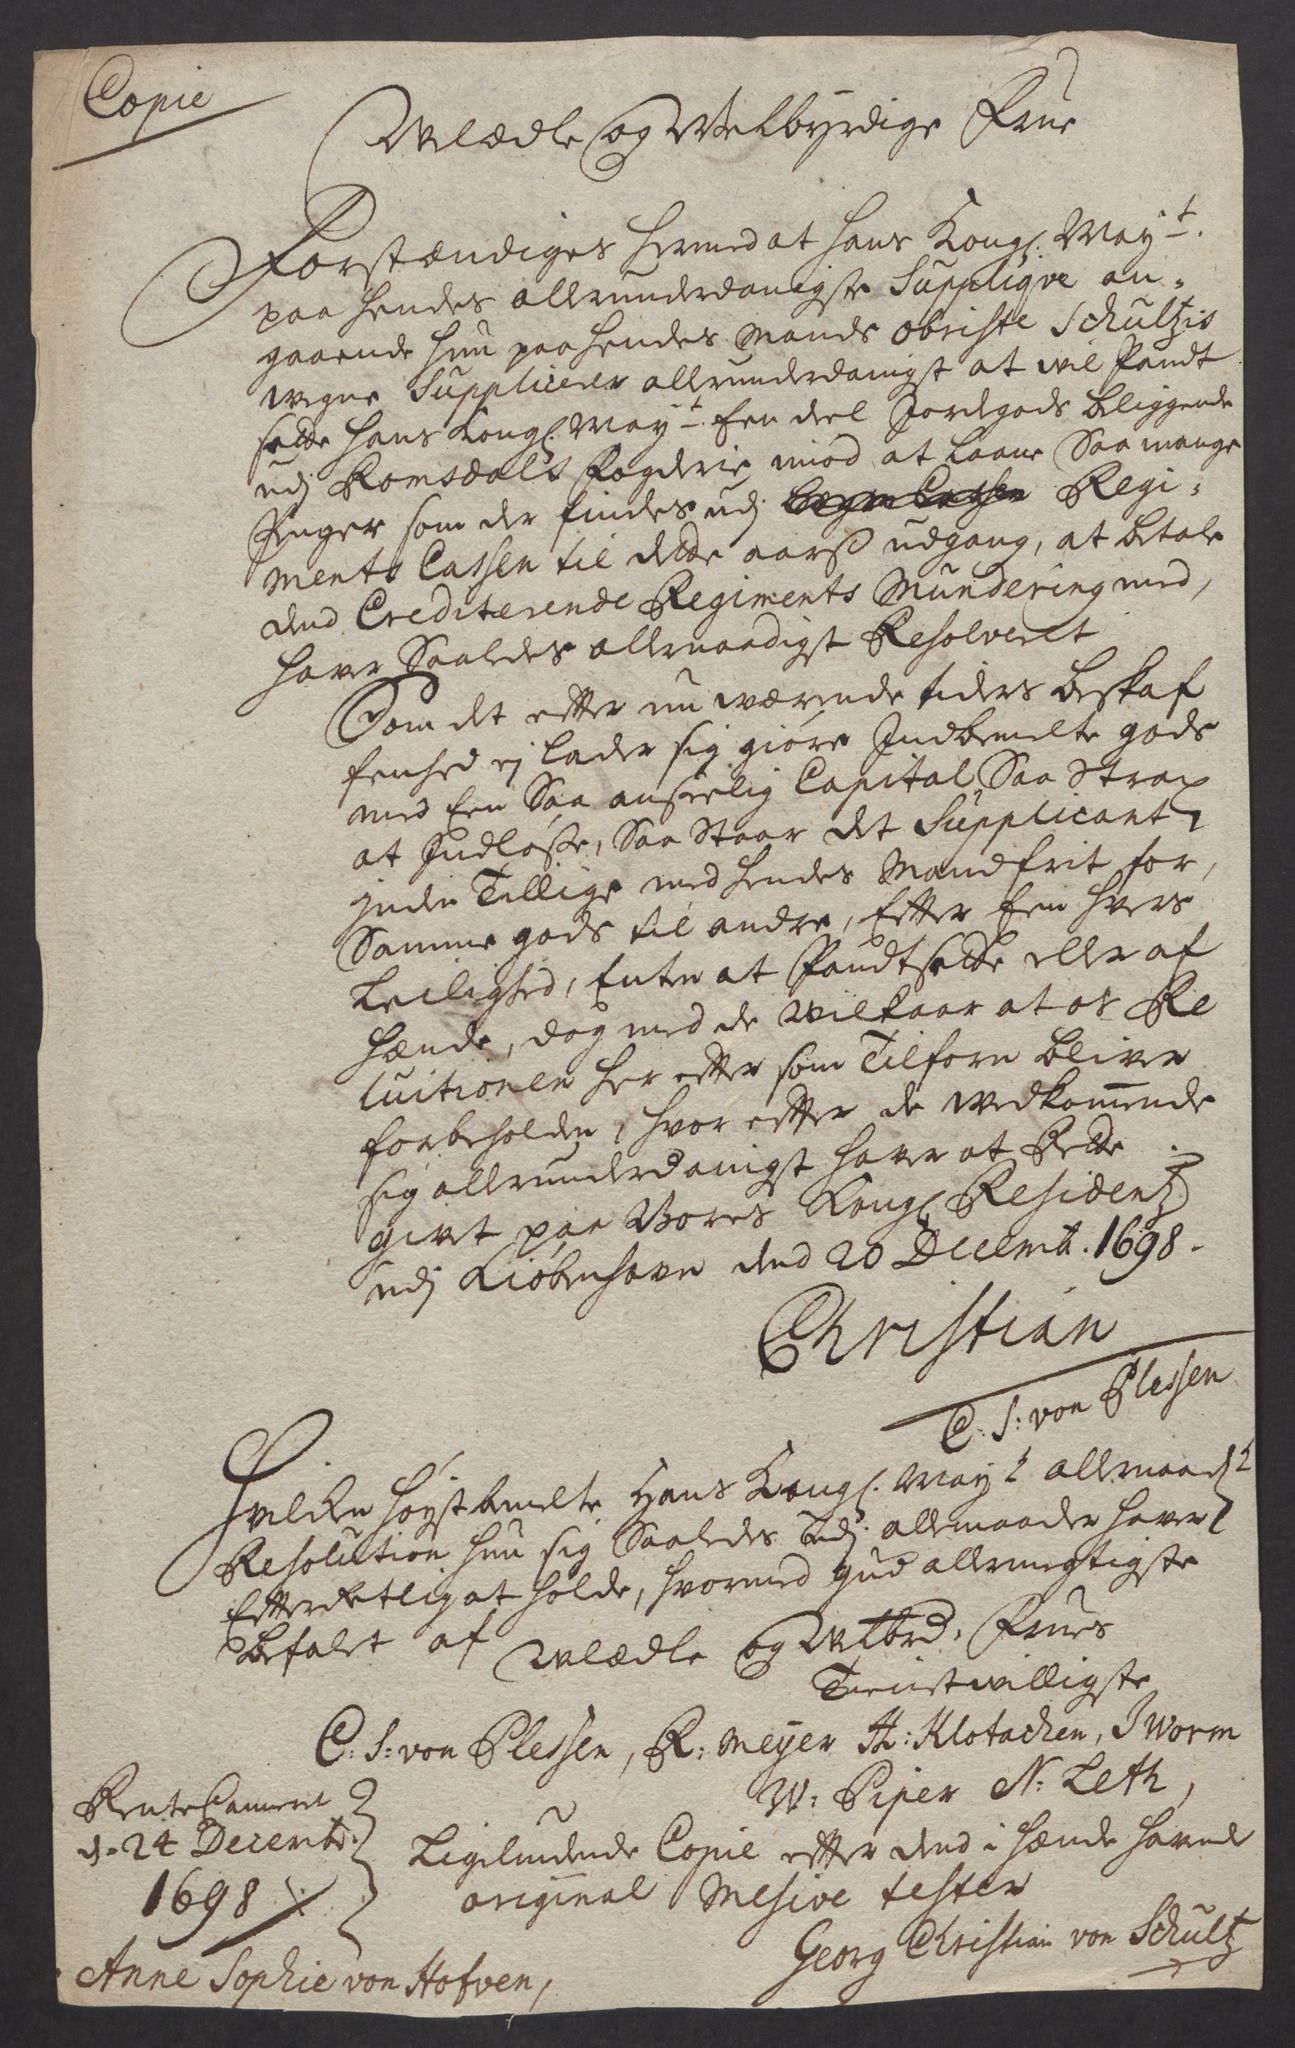 Copie
WelÆdle og Welbÿrdige Frue
Forstændiges hermed at hans Kongl. Mayt.
paa hendes allerunderdanigste Suppliqve an-
gaaende hun paa hendes Mands obriste Schultzis
wegne Supplicerer allerunderdanigst at wil Pandt
sætte hans Kongl. Mayt. Een deel Jordegods beliggende
udj Romsdals Fogderie, imod at laane Saa mange
Penger som der findes udj Regi-
ments Cassen til dette aars udgang, at betale
dend Crediterende Regiments Mundering med,
hafr Saaledes allernaadigst Resolveret
Som det efter nu wærende tiders beskaf
fenhed ej lader sig giøre Indbemelte gods
med Een Saa anseelig Capital Saa Strax
at Indløsse, Saa Staar det Supplicant
inden Tillige med hendes Mand frit for,
Samme gods til andre, Efter Een hvers
Leilighed, Enten at Pandtsætte eller af
hænde, dog med de Wilkaar at os Re
luitionen her efter som Tilforn bliver
forbeholden, hvor efter de wedkom̄ende
sig allerunderdanigst hafver at Rette
givet paa Vores Kongl. Residentz
udj Kiøbenhavn dend 20 Decembr. 1698.
Christian
C: S: von Plessen
Hvilken høystbemelte Hans Kongl. Mayts allernaadte
Resolution hun sig Saaledes Udj allemaader hafver
Efterretlig at holde, hvormed gud allermegtigste
Befalet af
WelÆdle og Welbrd. Frues
Tienstwilligste
C: S: von Plessen, P: Meÿer Th: Klotachen, J Worm
W: Piper N: Leth,
RenteCameret
d- 24 Decembr.
1698
Ligeludende Copie efter dend i hænde havende
original Mesive tester
Georg Christian von Schultz
Anne Sophie von Hofven,